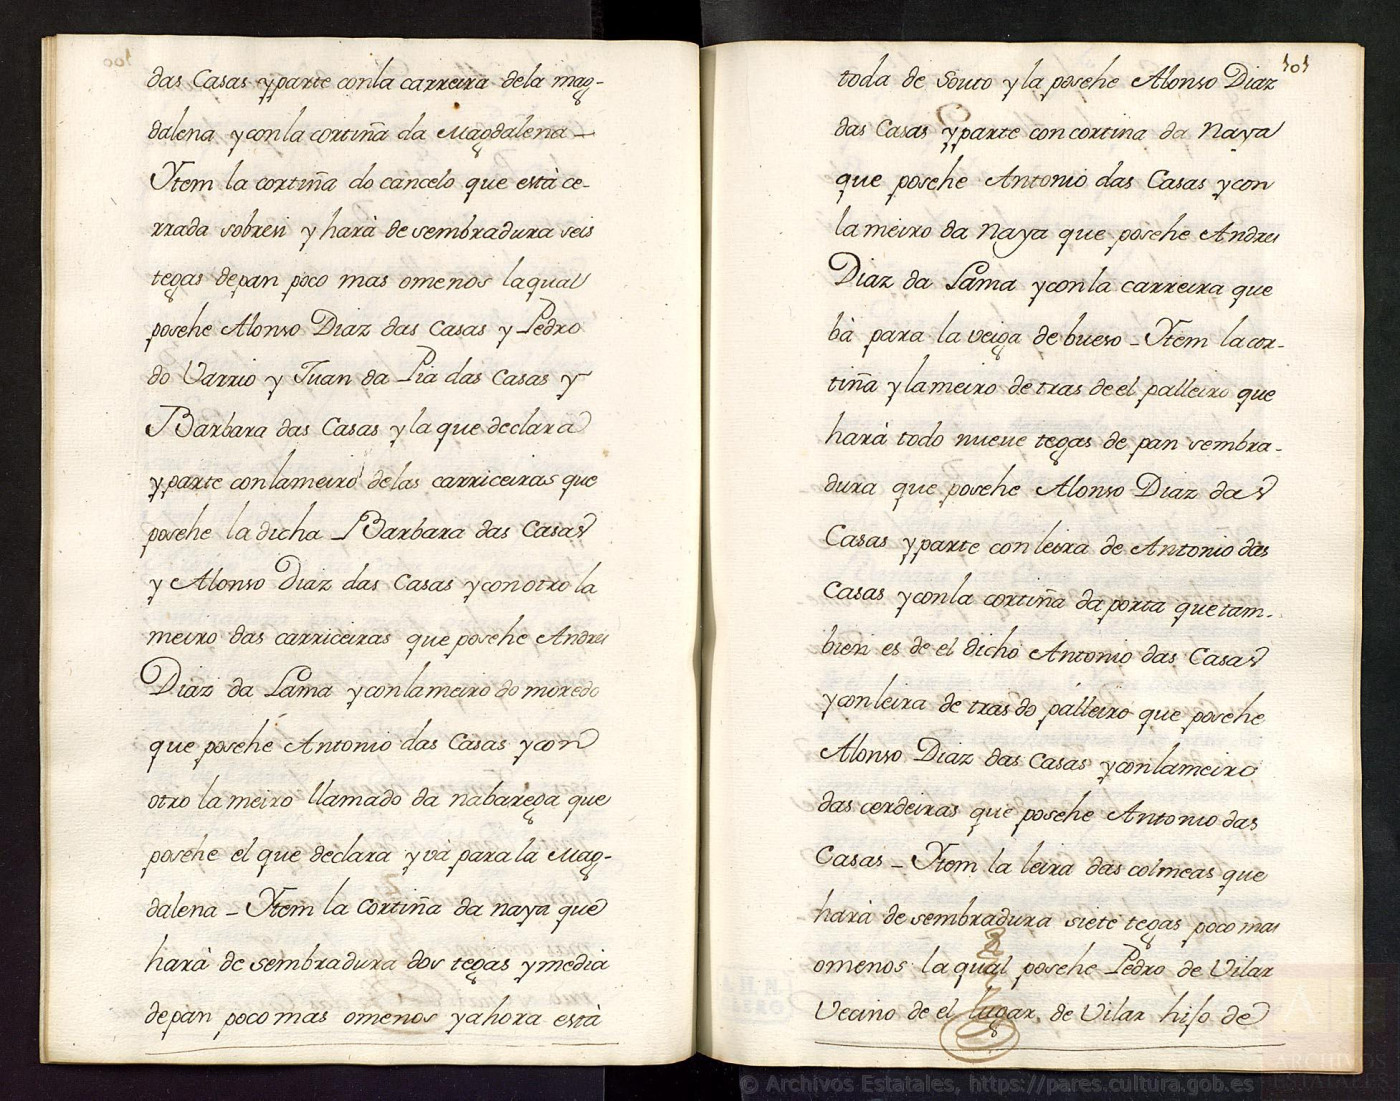 das Casas y parte conla carreira dela mag-
dalena y con la cortiña da Magdalena –
Ytem la cortiña do cancelo que està ce-
rrada sobresi y harà de sembradura seis
tegas de pan poco mas omenos la qual
posehe Alonso Diaz das Casas y Pedro
do Varrio y Juan da Pia das Casas y
Barbara das Casas y la que declara
y parte con lameiro de las carriceiras que
posehe la dicha Barbara das Casas
y Alonso Diaz das Casas y con otro la
meiro das carriceiras que posehe Andres
Diaz da Lama y con lameiro do moredo
que posehe Antonio das Casas y con
otro lameiro llamado da nabarega que
posehe el que declara y và para la Mag-
dalena – Ytem la Cortiña da naya que
harà de sembradura dos tegas y media
de pan poco mas omenos y ahora està
101
toda de Souto y la posehe Alonso Diaz
das Casas y parte con cortina da Naya
que posehe Antonio das Casas y con
lameiro da Naya que posehe Andres
Diaz da Lama y con la carreira que
bà para la veiga de bueso – Ytem la cor-
tiña y lameiro de tras de el palleiro que
harà todo nueue tegas de pan sembra-
dura que posehe Alonso Diaz das
Casas y parte con leira de Antonio das
Casas y con la cortiña da porta que tam-
bien es de el dicho Antonio das Casas
y con leira de tras do palleiro que posehe
Alonso Diaz das Casas y con lameiro
das cerdeiras que posehe Antonio das
Casas – Ytem la leira das colmeas que
harà de sembradura siete tegas poco mas
omenos la qual posehe Pedro de Vilar
Vecino de el lugar de Vilar hijo de
© Archivos Estatales, https://pares.cultura.gob.es
ARCHIVOS
ESTATALES